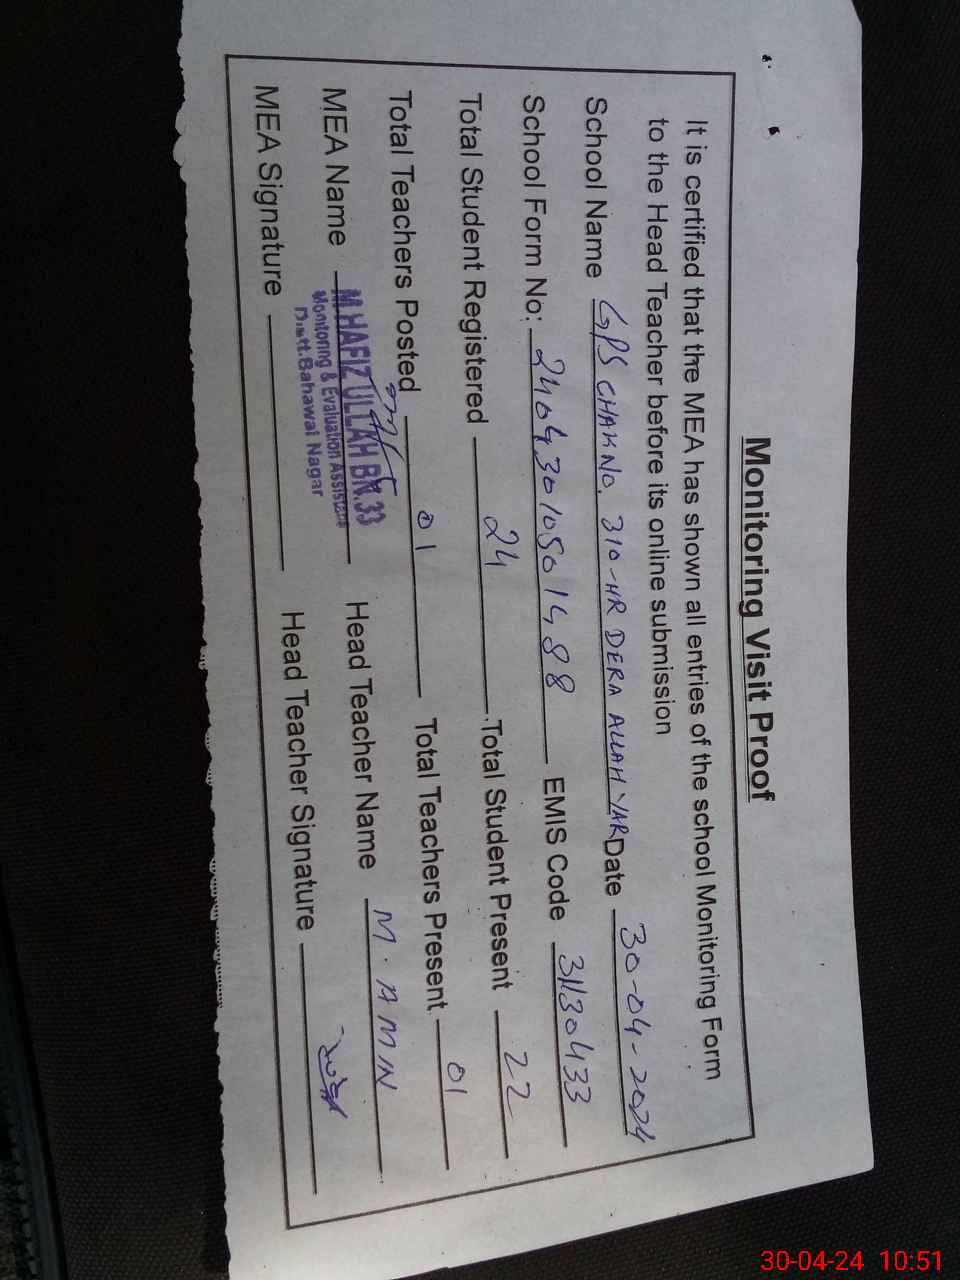 Monitoring Visit Proof
It is certified that the MEA has shown all entries of the school Monitoring Form
to the Head Teacher before its online submission
School Name GPS CHAK NO. 310-HR DERA ALLAH YAR Date 30-04-2024
School Form No: 24043010501488 EMIS Code 31130433
Total Student Registered 24 Total Student Present 22
Total Teachers Posted 01 Total Teachers Present 01
MEA Name M.HAFIZ ULLAH BN.33 Head Teacher Name M. AMIN
Monitoring & Evaluation Assistant
Distt.Bahawal Nagar
MEA Signature Head Teacher Signature
30-04-24 10:51